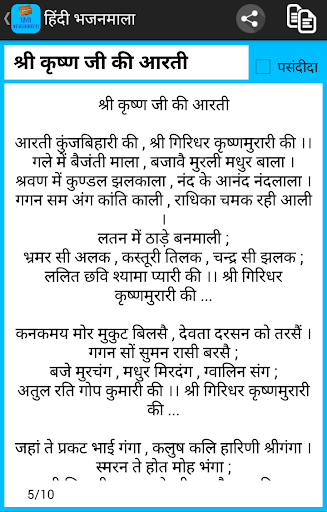 हिंदी भजनमाला
श्री कृष्ण जी की आरती
पसंदीदा
श्री कृष्ण जी की आरती
आरती कुंजबिहारी की , श्री गिरिधर कृष्णमुरारी की ।।
गले में बैजंती माला , बजावै मुरली मधुर बाला ।
श्रवण में कुण्डल झलकाला , नंद के आनंद नंदलाला ।
गगन सम अंग कांति काली , राधिका चमक रही आली
।
लतन में ठाड़े बनमाली ;
भ्रमर सी अलक , कस्तूरी तिलक , चन्द्र सी झलक ;
ललित छवि श्यामा प्यारी की ।। श्री गिरिधर
कृष्णमुरारी की ...
कनकमय मोर मुकुट बिलसै , देवता दरसन को तरसैं ।
गगन सों सुमन रासी बरसै ;
बजे मुरचंग , मधुर मिरदंग , ग्वालिन संग ;
अतुल रति गोप कुमारी की ।। श्री गिरिधर कृष्णमुरारी
की ...
जहां ते प्रकट भाई गंगा , कलुष कलि हारिणी श्रीगंगा ।
स्मरन ते होत मोह भंगा ;
5/10